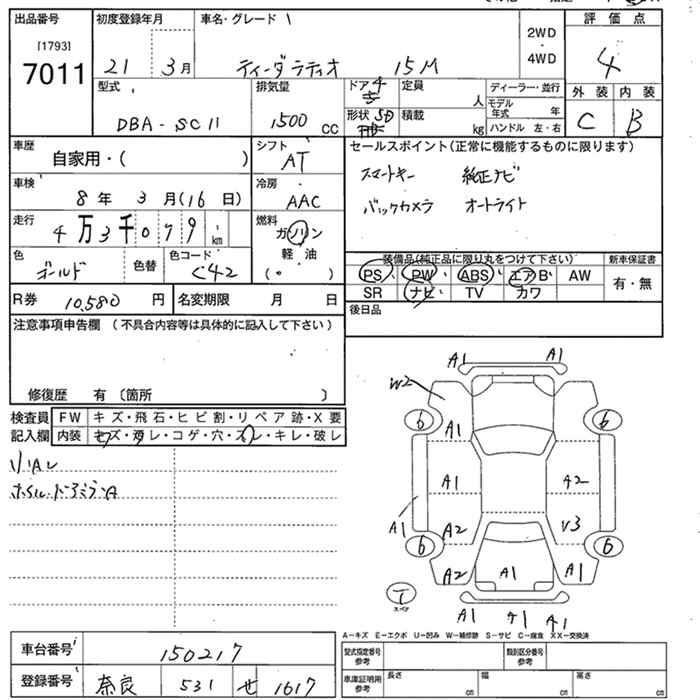 出品番号 初度登録年月 車名・グレード 2WD・4WD 評価点
[1793]
7011
21 3月 ティーダラティオ 15M 4
型式 排気量 ドア 4 定員 人 ディーラー・並行 外装 内装
DBA-SC11 1500 CC 形状 SD 積載 kg モデル年式 年 ハンドル 左・右 C B
車歴 シフト セールスポイント(正常に機能するものに限ります)
自家用・( ) AT スマートキー 純正ナビ
車検 冷房 バックカメラ オートライト
8年 3月(16日) AAC
走行 燃料
4万3千079 km ガソリン
色 色替 色コード 軽油 装備品(純正品に限り丸をつけて下さい) 新車保証書
ゴールド C42 ( ) PS PW ABS エアB AW 有・無
SR ナビ TV カワ
R券 10,580 円 名変期限 月 日 後日品
注意事項申告欄 (不具合内容等は具体的に記入して下さい)
修復歴 有〔箇所 〕
検査員記入欄 FW キズ・飛石・ヒビ割・リペア跡・X要
内装 キズ・汚レ・コゲ・穴・スレ・キレ・破レ
A1 A1
W2
6 6
A1
A1 A2
A1 A2 V3
6 6
A2 A1 A1
スペア
A1 A1
A-キズ E-エクボ U-凹み W-補修跡 S-サビ C-腐食 XX-交換済
車台番号 150217
型式指定番号 参考 類別区分番号 参考
登録番号 奈良 531 せ 1617
車庫証明用 参考 長さ cm 幅 cm 高さ cm